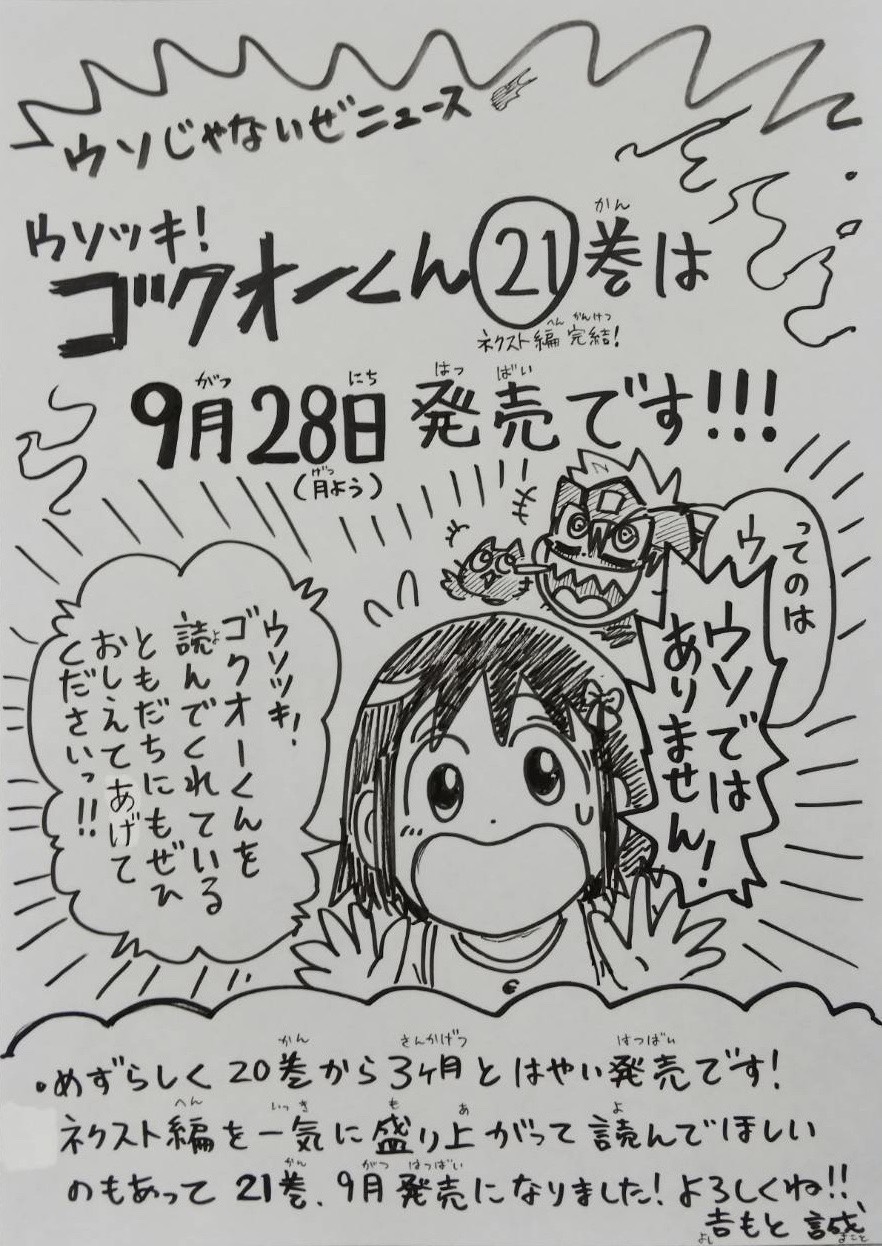 ウソじゃないぜニュース
ウソツキ!
ゴクオーくん㉑巻は
ネクスト編完結!
9月28日発売です!!!
(月よう)
ってのは
ウ
ウソでは
ありません!
ウソツキ!
ゴクオーくんを
読んでくれている
ともだちにもぜひ
おしえてあげて
くださいっ!!
・めずらしく20巻から3ヶ月とはやい発売です!
ネクスト編を一気に盛り上がって読んでほしい
のもあって21巻、9月発売になりました!よろしくね!!
吉もと誠